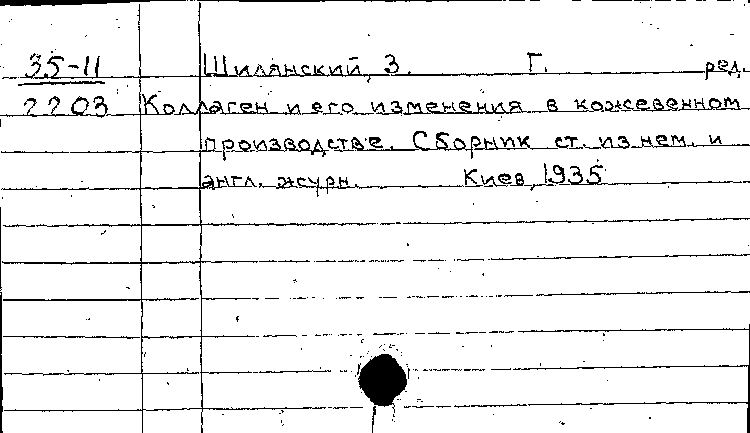 35-11 Шилянский, З. Г. ред.
2203 Коллаген и его изменения в кожевенном
производстве. Сборник ст. из нем. и
англ. журн. Киев, 1935